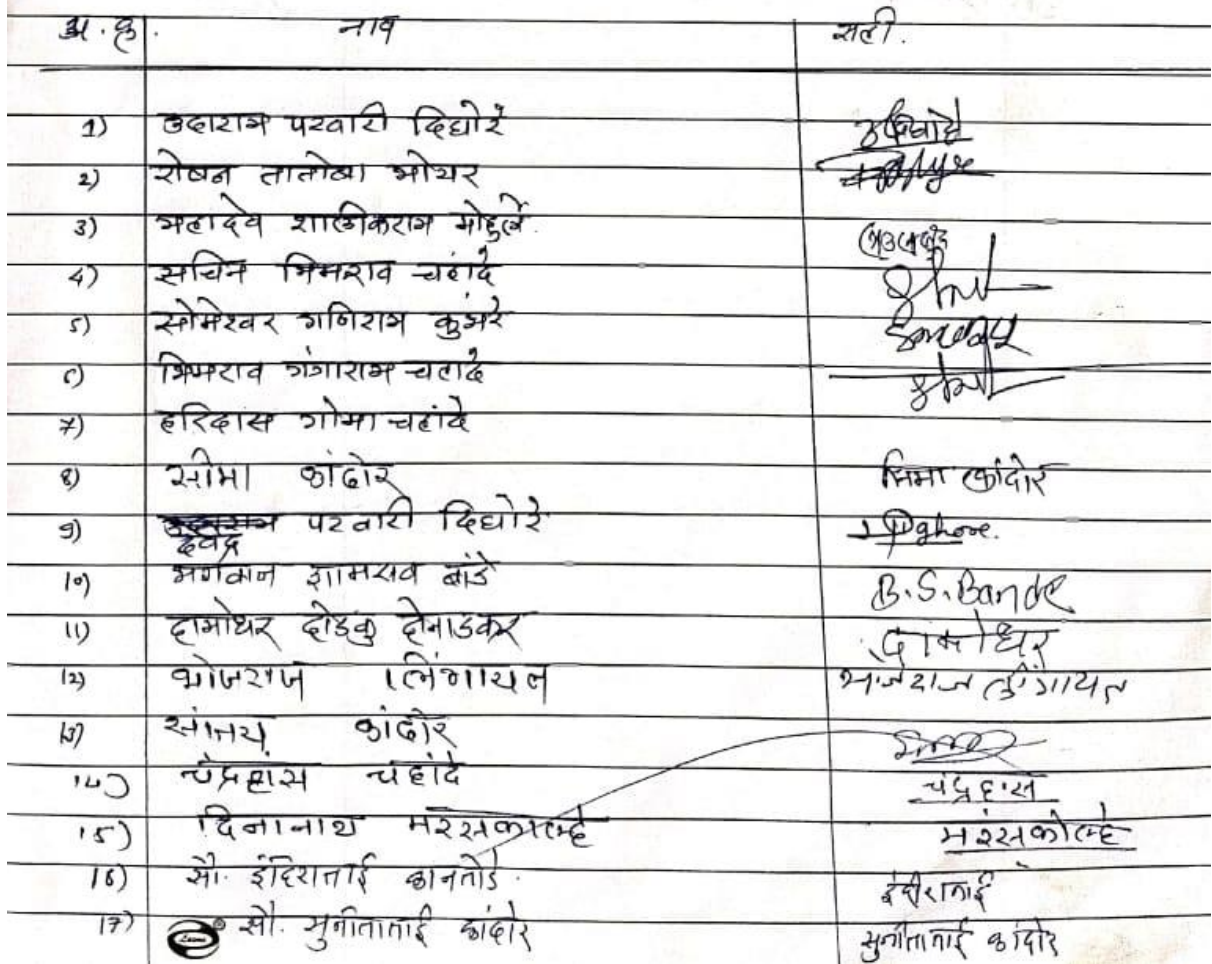 अ.क्र. नाव सही.
1) उदाराम परवारी दिघोरे
2) रोषन तातोबा भोयर
3) महादेव शालीकराम मोहुर्ले
4) सचिन भिमराव चहांदे
5) सोमेश्वर गणिराम कुंभरे
6) भिमराव गंगाराम चहांदे
7) हरिदास गोमा चहांदे
8) सीमा कांदोर सिमा कांदोर
9) देवेंद्र परवारी दिघोरे Dighore.
10) भगवान शामराव बांडे B.S.Bande
11) दामोधर दोडकु दोनाडकर दामोधर
12) भोजराज लिंगायत भोजराज लींगायत
13) संजय कांदोर
14) चंद्रहांस चहांदे चंद्रहास
15) दिनानाथ मरसकोल्हे मरसकोल्हे
16) सौ. इंदिराताई कानतोडे. इंदीराताई
17) सौ. सुनीताताई कांदोर सुनीताताई कांदोर